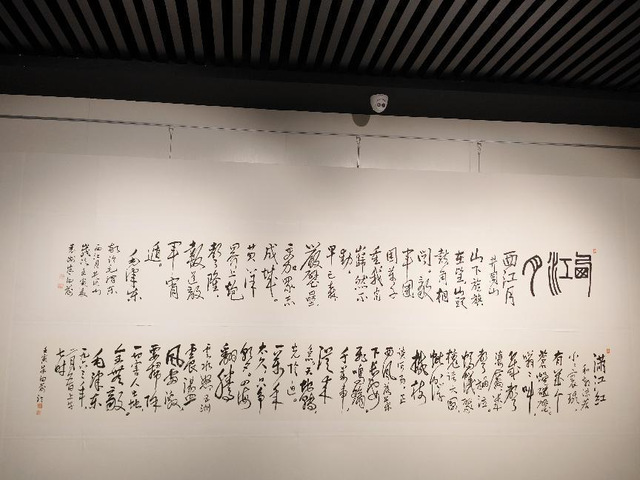 西江月
西江月
井冈山
山下旌旗
在望山头
鼓角相
闻敌
军围
困万千
重我自
岿然不
动
早已森
严壁垒
更加众志
成城
黄洋
界上炮
声隆
报道敌
军宵
遁
毛泽东
满江红
和郭沫若
小小寰球
有几个
苍蝇碰壁
嗡嗡叫
几声
凄厉几
声抽泣
蚂蚁缘
槐夸大国
蚍蜉
撼树
谈何易正
西风落叶
下长安
飞鸣镝
多少事
从来
急天地转
光阴迫
一万年
太久只争
朝夕四海
翻腾
云水怒五洲
震荡
风雷激
要扫除
一切害人虫
全无敌
毛泽东
一九六三年